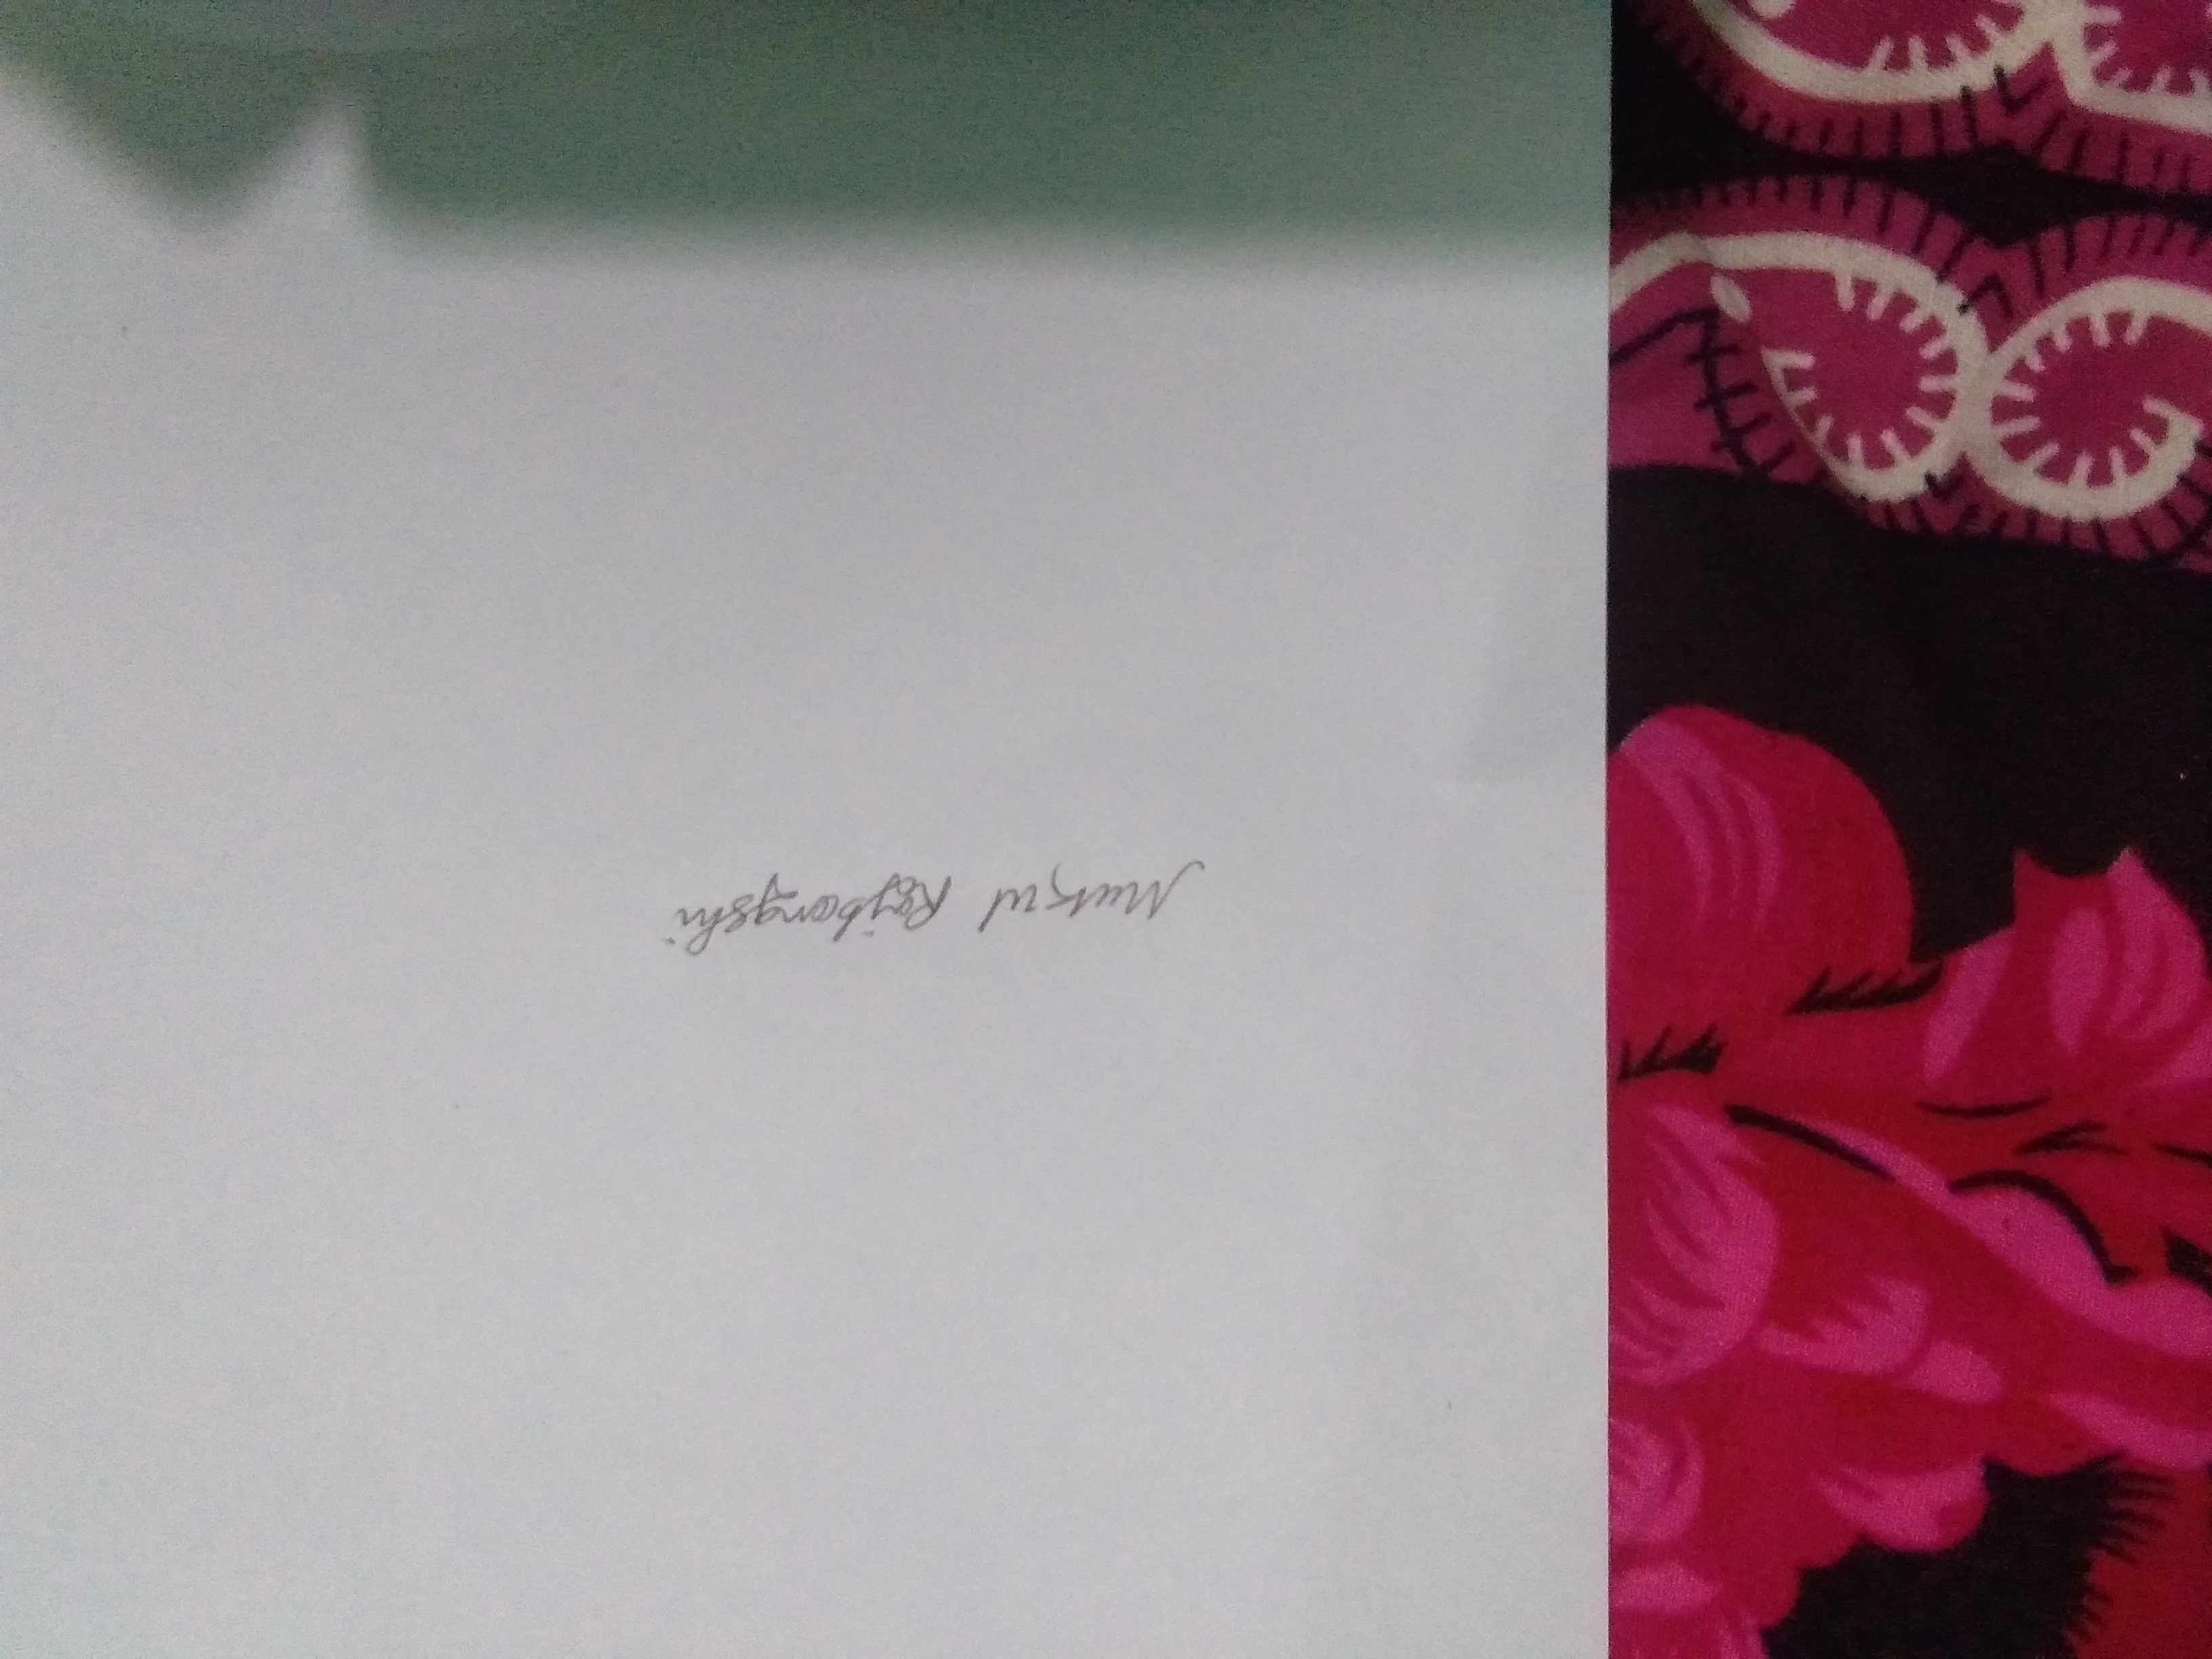 Mukul Rajbongshi